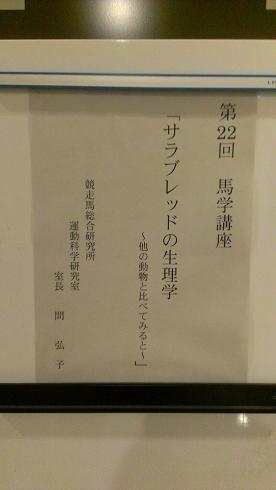 第22回　馬学講座
「サラブレッドの生理学
～他の動物と比べてみると～」
競走馬総合研究所
運動科学研究室
室長　間　弘子